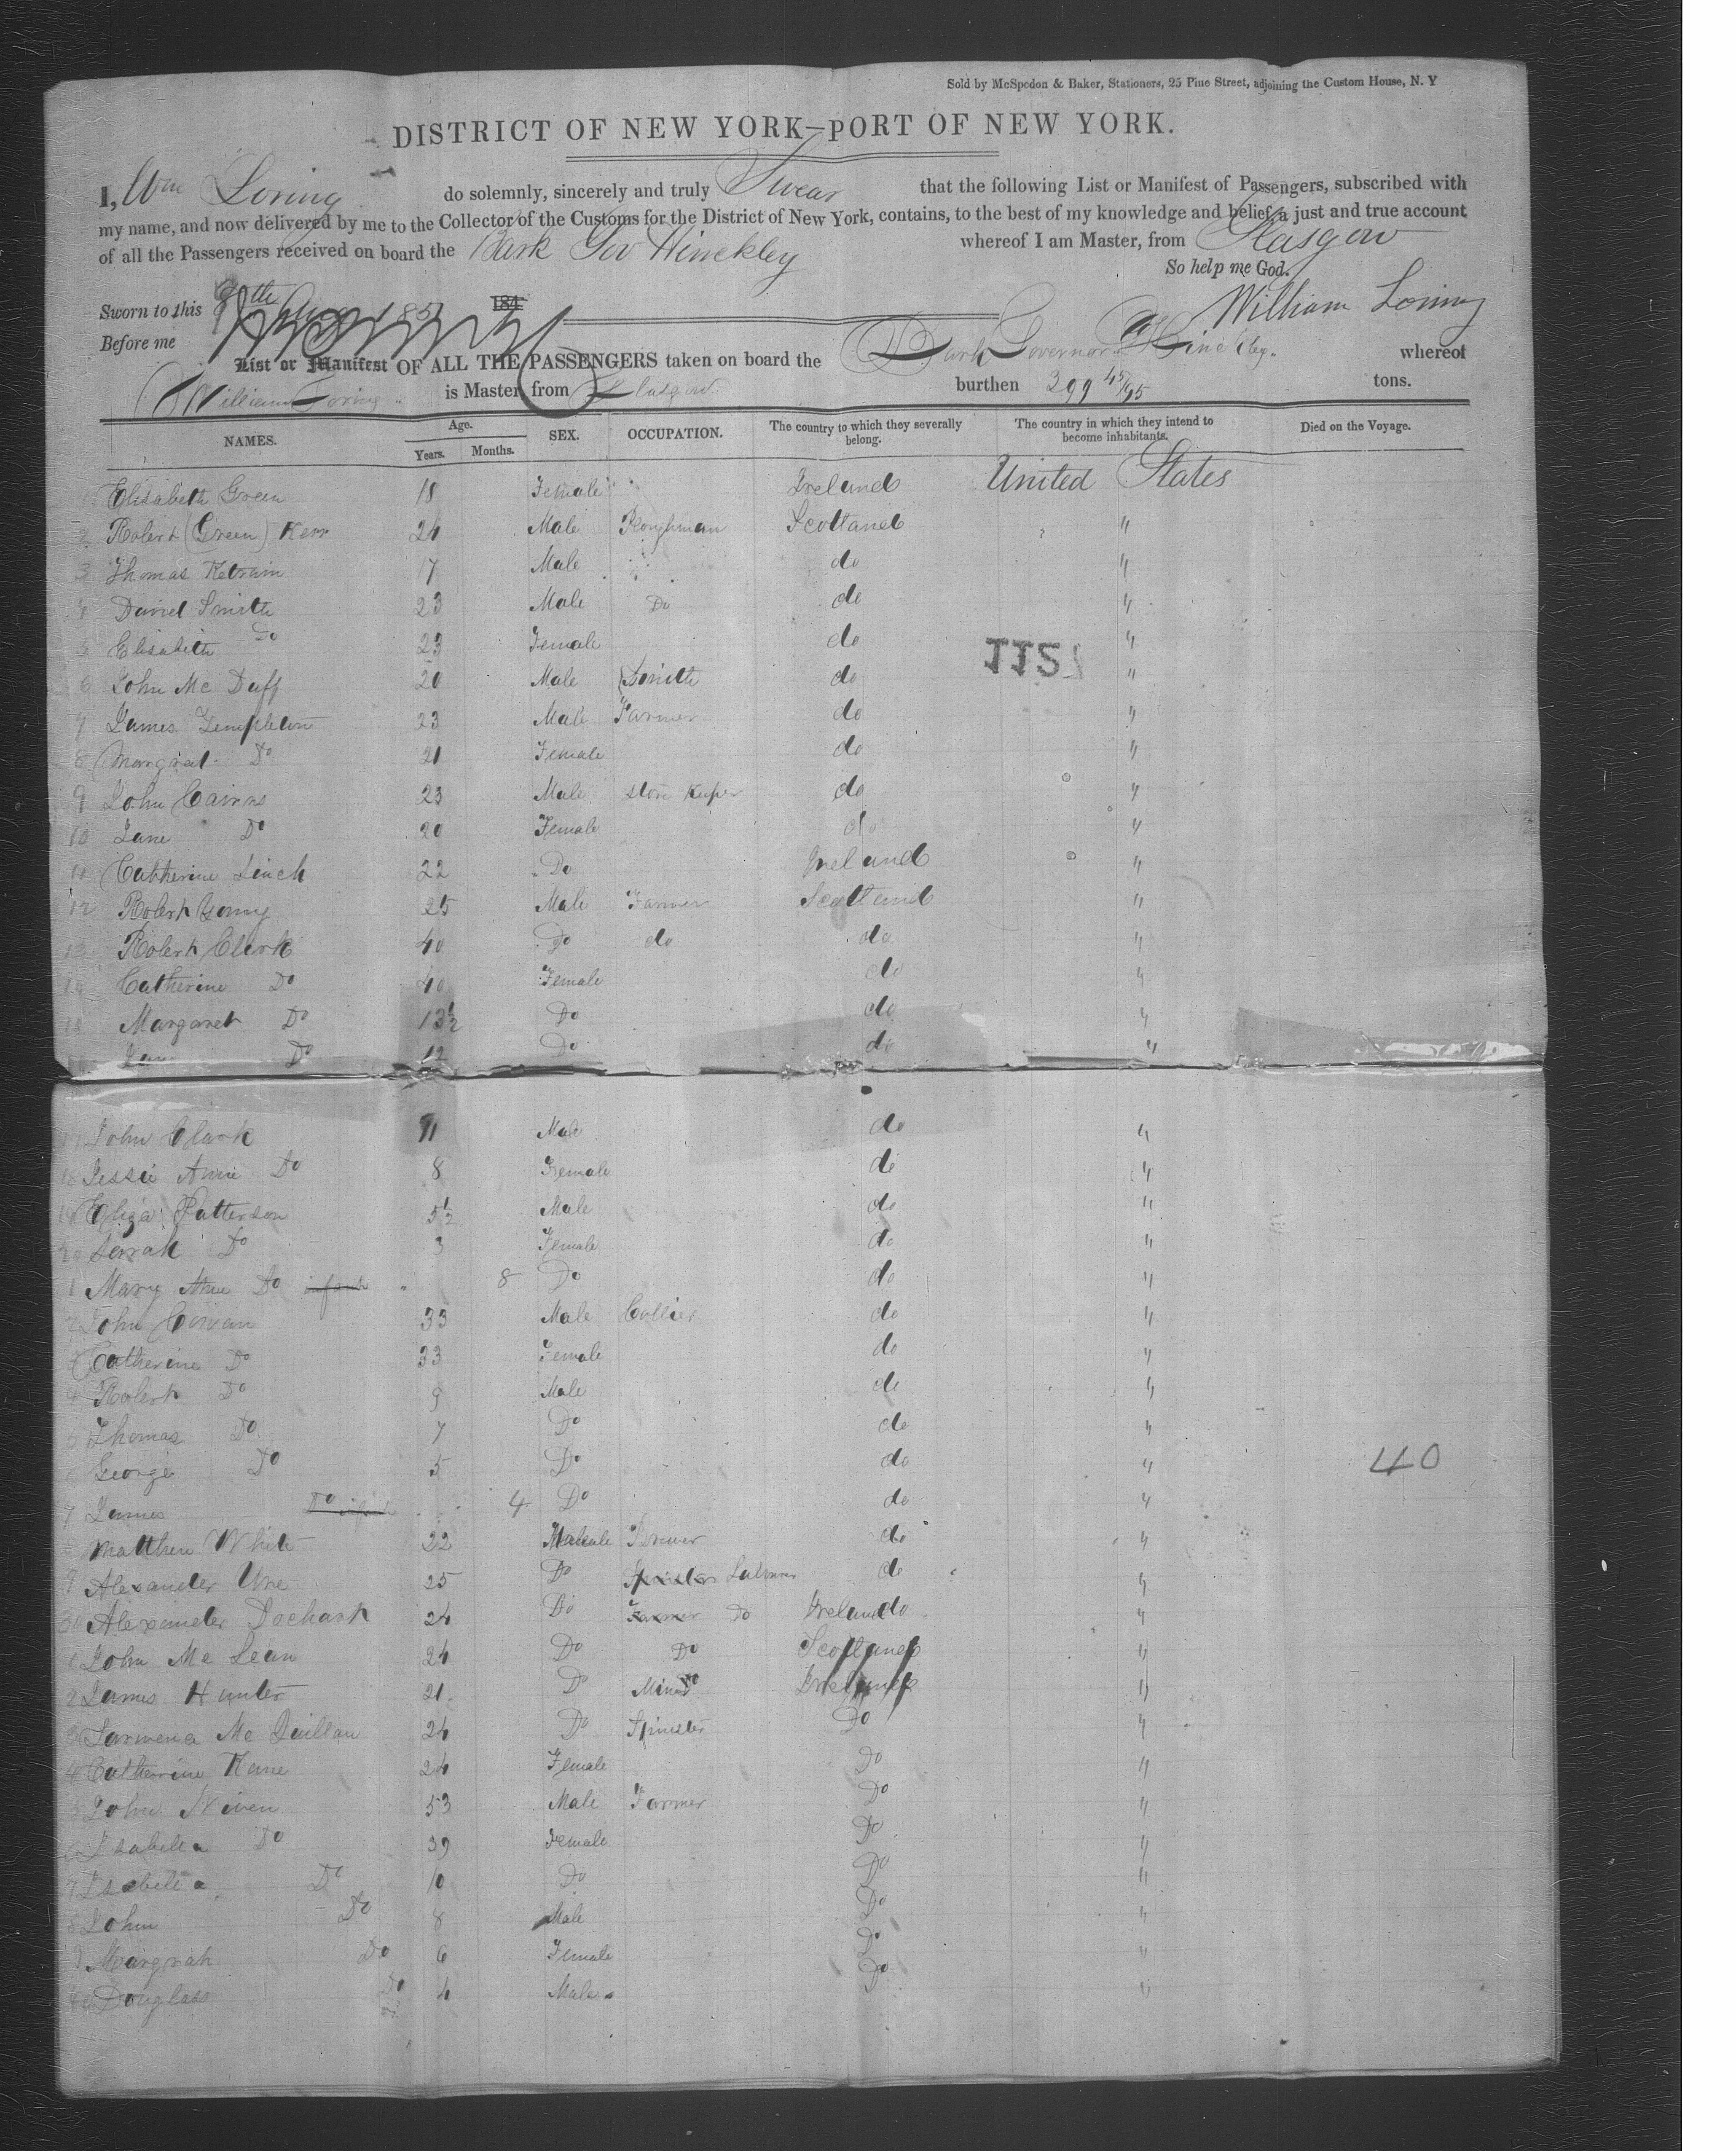 Sold by McSpedon & Baker, Stationers, 25 Pine Street, adjoining the Custom House, N. Y
DISTRICT OF NEW YORK—PORT OF NEW YORK.
I, Wm Loring do solemnly, sincerely and truly Swear that the following List or Manifest of Passengers, subscribed with
my name, and now delivered by me to the Collector of the Customs for the District of New York, contains, to the best of my knowledge and belief, a just and true account
of all the Passengers received on board the Bark Gov Hinckley whereof I am Master, from Glasgow
So help me God.
Sworn to this 9th Aug 1851 184 William Loring
Before me
List or Manifest OF ALL THE PASSENGERS taken on board the Bark Governor Hinckley whereof
William Loring is Master, from Glasgow burthen 399 45/95 tons.
NAMES. Age. Years. Months. SEX. OCCUPATION. The country to which they severally belong. The country in which they intend to become inhabitants. Died on the Voyage.
1 Elisabeth Green 18 Female Ireland United States
2 Robert (Green) Kerr 24 Male Ploughman Scotland "
3 Thomas 17 Male do "
4 Daniel Smith 23 Male Do do "
5 Elisabeth Do 23 Female do "
1152
6 John Mc Duff 20 Male Smith do "
7 James Templeton 23 Male Farmer do "
8 Margrat Do 21 Female do "
9 John Cairns 23 Male Store Keeper do "
10 Jane Do 20 Female do "
11 Catherine Linch 22 Do Ireland "
12 Robert Young 25 Male Farmer Scotland "
13 Robert Clark 40 Do do do "
14 Catherine Do 40 Female do "
15 Margaret Do 13½ Do do "
Do 12 Do do "
17 John Clark 11 Male do "
18 Jessie Anne Do 8 Female do "
19 Eliza Patterson 5½ Male do "
20 Sarrah Do 3 Female do "
1 Mary Ann Do infant 8 Do do "
2 John Cowan 33 Male Collier do "
3 Catherine Do 33 Female do "
4 Robert Do 9 Male do "
5 Thomas Do 7 Do do "
6 George Do 5 Do do " 40
7 James Do infant 4 Do do "
8 Matthew White 22 Male do "
9 Alexander Ure 25 Do Spinster Labourer do "
30 Alexander Dochart 24 Do Farmer Do Ireland do "
1 John Mc Lean 24 Do Do Scotland "
2 James Hunter 21 Do Miner Do Ireland "
3 Mc Quillan 24 Do Spinster Do "
4 Catherine Kane 24 Female Do "
5 John Niven 53 Male Farmer Do "
6 Isabella Do 39 Female Do "
7 Isabella Do 10 Do Do "
8 John Do 8 Male Do "
9 Margrah Do 6 Female Do "
40 Douglass Do 4 Male Do "